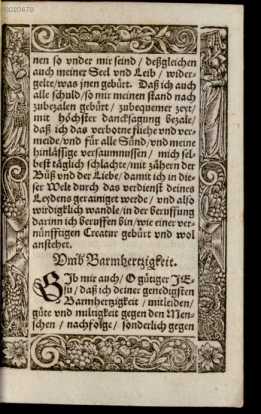 00020479
nen so vnder mir seind / deßgleichen
auch meiner Seel vnd Leib / wider-
gelte / was jnen gebürt. Daß ich auch
alle schuld / so mir meinen stand nach
zubezalen gebürt / zubequemer zeyt /
mit höchster dancksagung bezale /
daß ich das verbotne fliehe vnd ver-
meide / vnd für alle Sünd / vnd meine
hinlässige versaumnussen / mich sel-
best täglich schlachte / mit zähern der
Büß vnd der Liebe / damit ich in die-
ser Welt durch das verdienst deines
Leydens gerainiget werde / vnd also
wirdigklich wandle / in der beruffung
darinn ich beruffen bin / wie einer ver-
nünfftigen Creatur gebürt vnd wol
anstehet.
Vmb Barmhertzigkeit.
GIb mir auch / O gütiger JE-
su / daß ich deiner genedigsten
Barmhertzigkeit / mitleiden /
güte vnd miltigkeit gegen den Men-
schen / nachfolge / sonderlich gegen